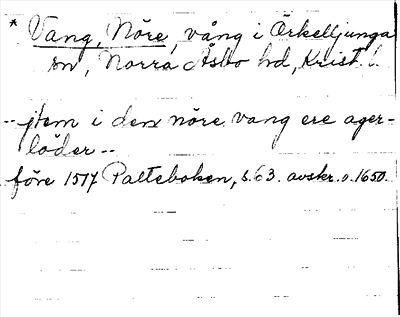 * Vang, Nöre, vång i Örkelljunga
sn, Norra Åsbo hd, Krist. l.
-- jtem i den nöre vang ere ager-
löder --
före 1517 Palteboken, s. 63. avskr. o. 1650.